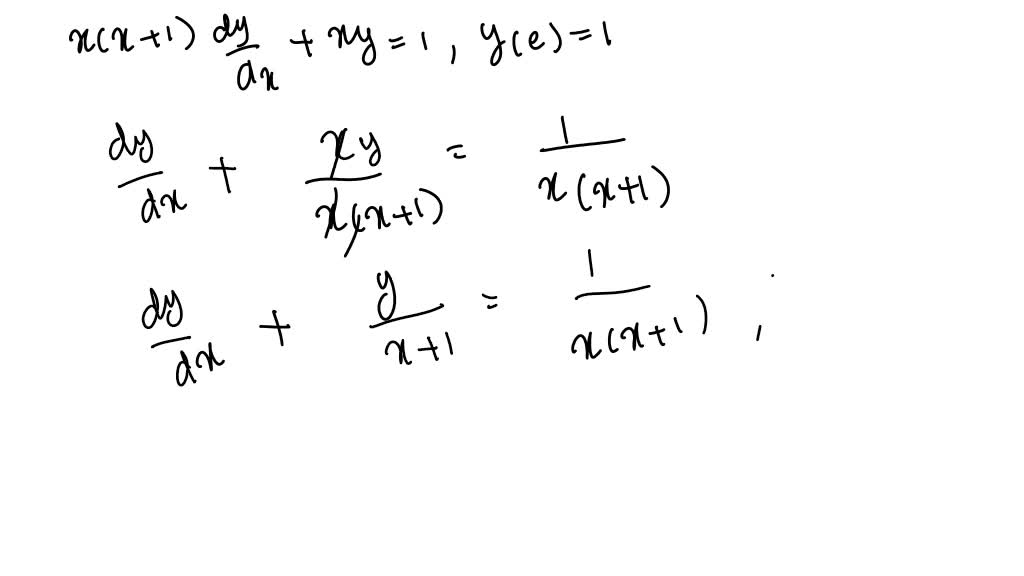 x(x+1) dy/dx + xy = 1 , y(e) = 1
dy/dx + xy/x(x+1) = 1/x(x+1)
dy/dx + y/x+1 = 1/x(x+1) ,